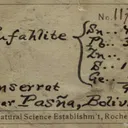 No. 11
Sn.
.fahlite
Pb.
Zn.
S.
Ge.
nserrat
ar Pasña, Boliv
atural Science Establishm't, Roche